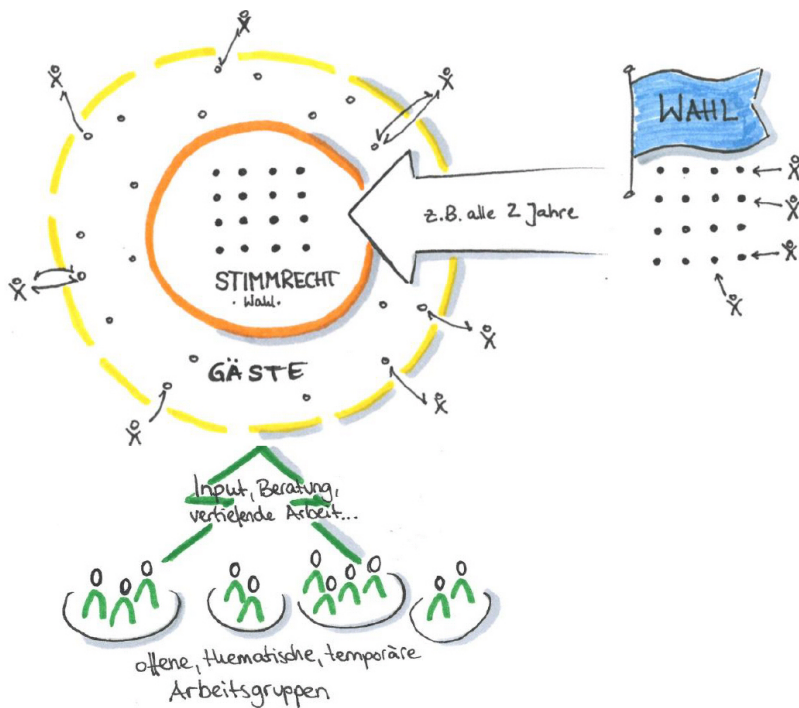 WAHL
z.B. alle 2 Jahre
STIMMRECHT
• Wahl •
GÄSTE
Input, Beratung,
vertiefende Arbeit...
offene, thematische, temporäre
Arbeitsgruppen